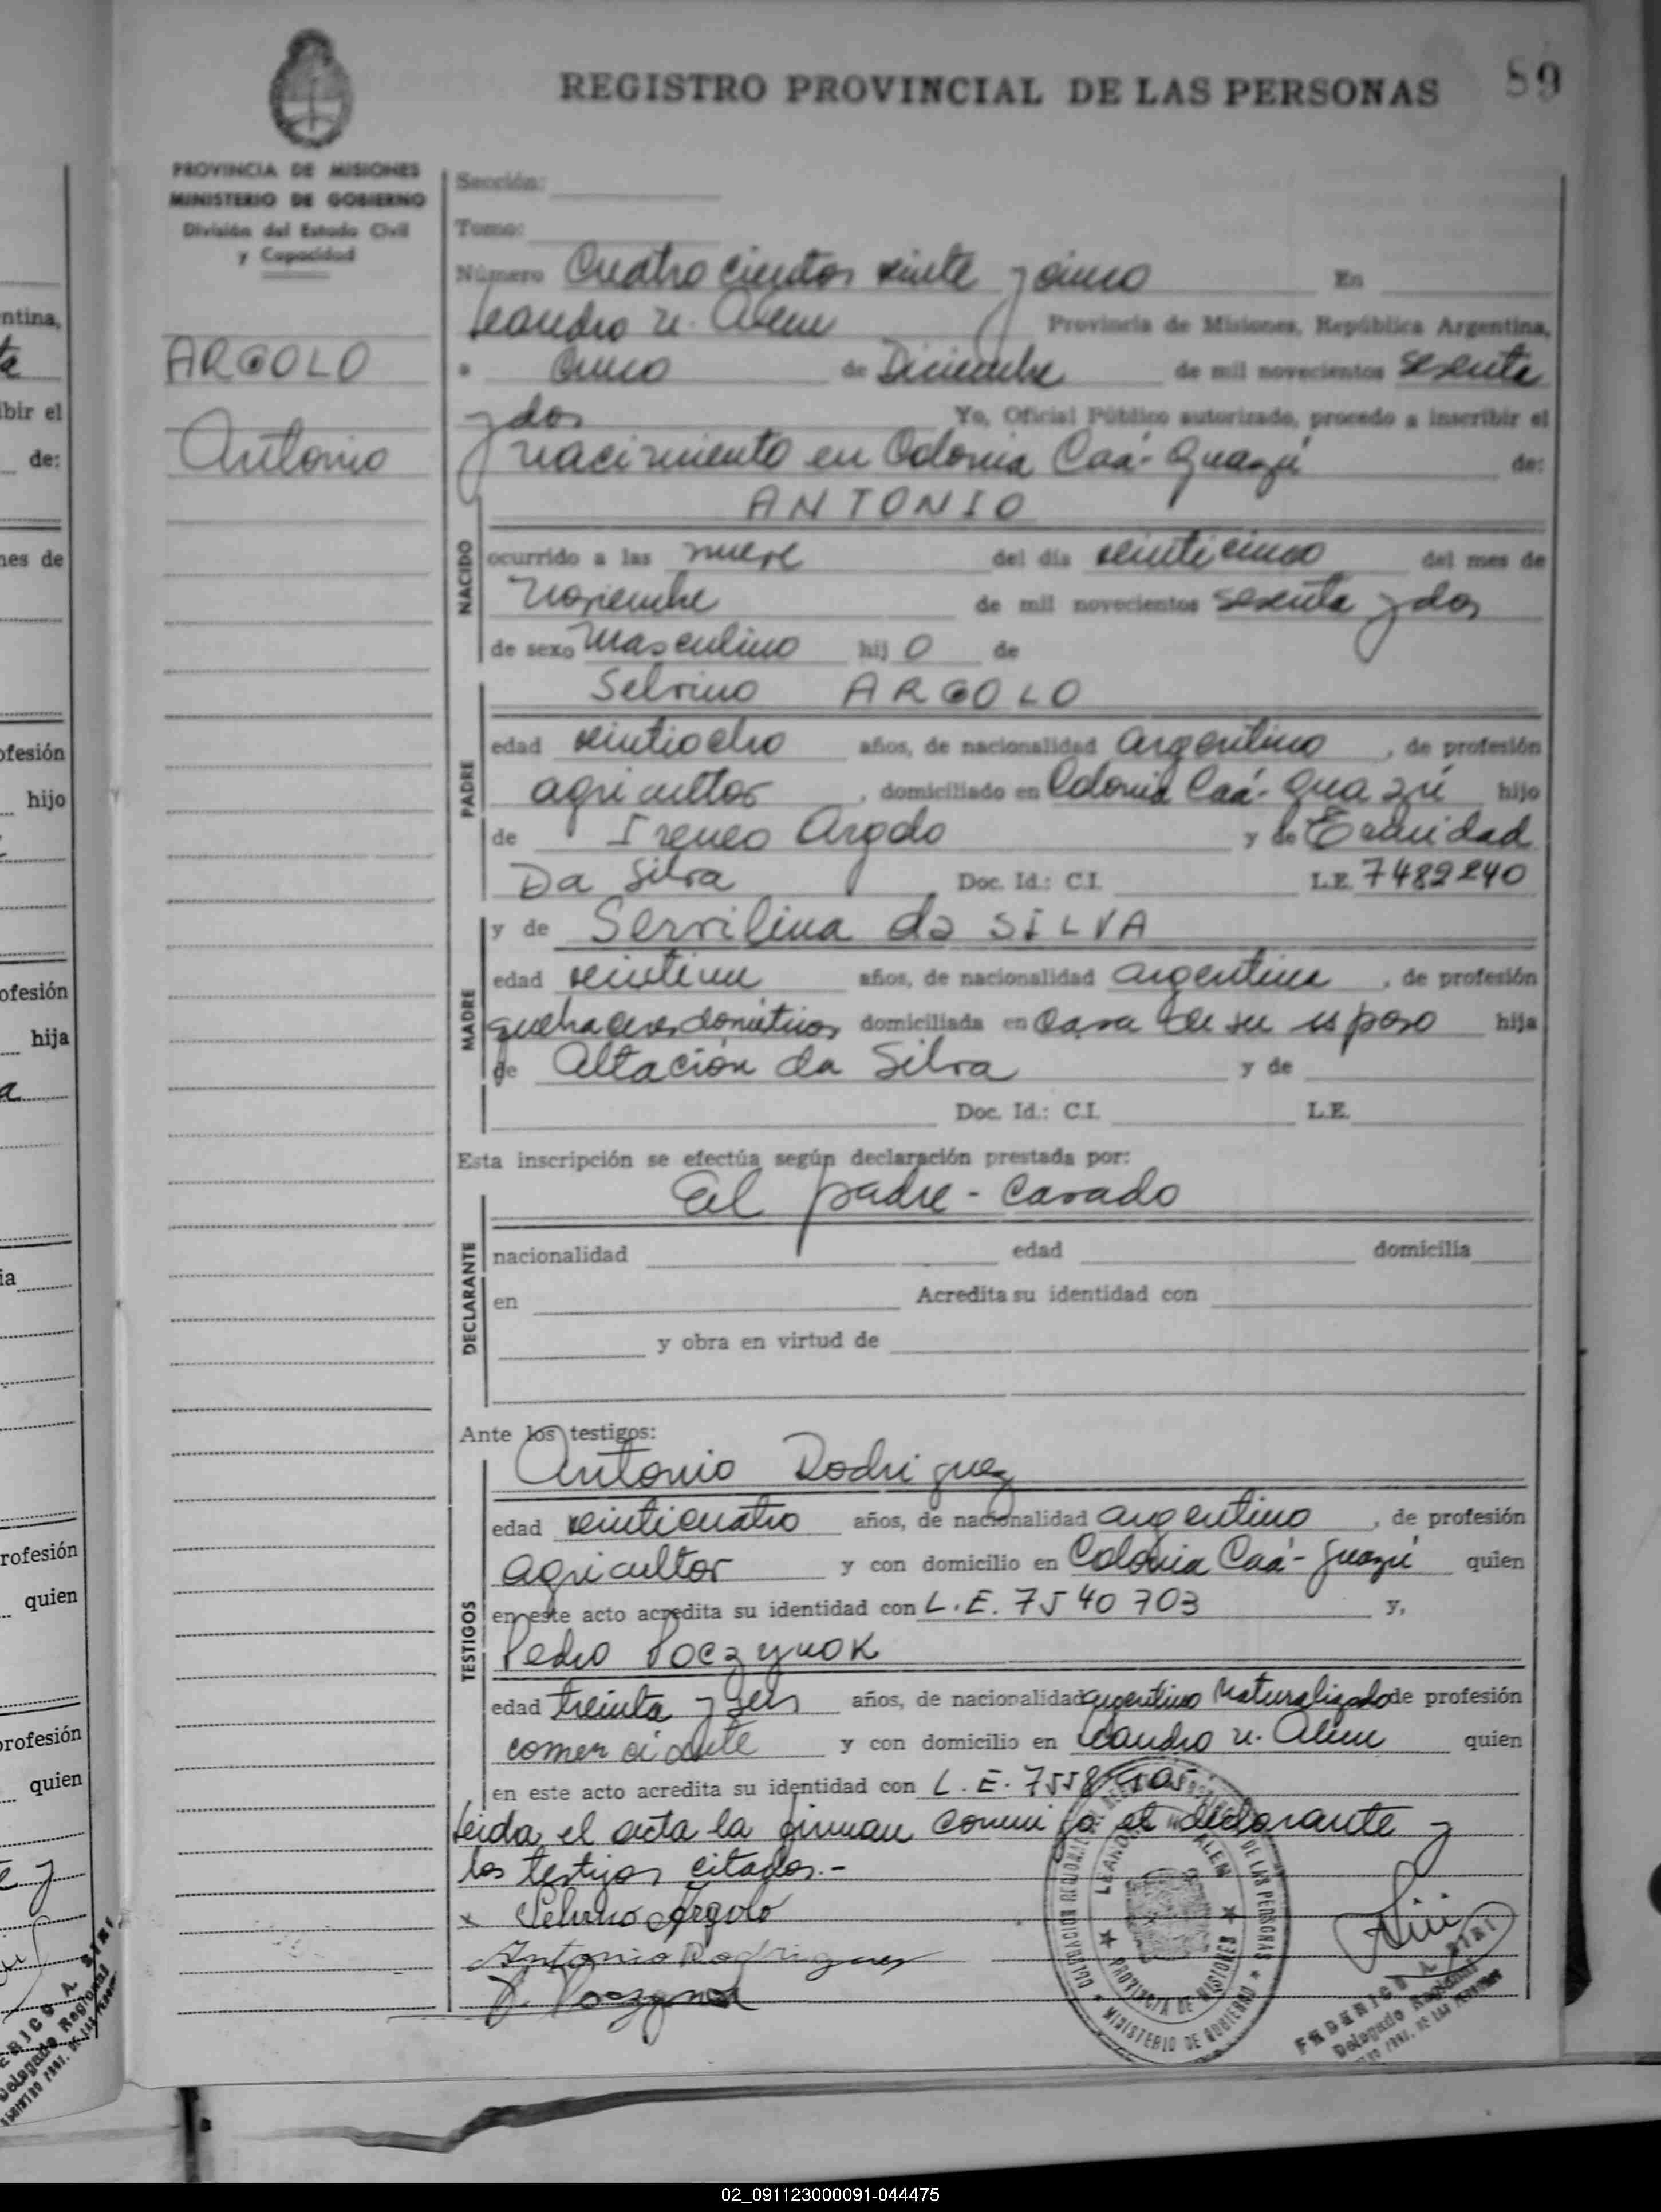 REGISTRO PROVINCIAL DE LAS PERSONAS 89
PROVINCIA DE MISIONES
MINISTERIO DE GOBIERNO
División del Estado Civil
y Capacidad
ARGOLO
Antonio
Sección:
Tomo:
Número Cuatrocientos veinte y cinco En
Leandro N. Alem Provincia de Misiones, República Argentina,
a cinco de Diciembre de mil novecientos sesenta
y dos Yo, Oficial Público autorizado, procedo a inscribir el
nacimiento en Colonia Caá-Guazú de:
ANTONIO
NACIDO
ocurrido a las nueve del día veinticinco del mes de
Noviembre de mil novecientos sesenta y dos
de sexo Masculino hijo de
Selvino ARGOLO
PADRE
edad veintiocho años, de nacionalidad argentino, de profesión
agricultor, domiciliado en Colonia Caá-Guazú hijo
de Ireneo Argolo y de
Da Silva Doc. Id.: C.I. L.E. 7482240
MADRE
y de Servilina da SILVA
edad veintiun años, de nacionalidad argentina, de profesión
quehaceres domésticos domiciliada en casa de su esposo hija
de Altación da Silva y de
Doc. Id.: C.I. L.E.
Esta inscripción se efectúa según declaración prestada por:
El padre - casado
DECLARANTE
nacionalidad edad domicilia
en Acredita su identidad con
y obra en virtud de
Ante los testigos:
TESTIGOS
Antonio Rodriguez
edad veinticuatro años, de nacionalidad argentino, de profesión
agricultor y con domicilio en Colonia Caá-Guazú quien
en este acto acredita su identidad con L.E. 7540703 y,
Pedro Poczynok
edad treinta y seis años, de nacionalidad argentino Naturalizado de profesión
comerciante y con domicilio en Leandro N. Alem quien
en este acto acredita su identidad con L.E.
Leida el acta la firman conmigo el declarante y
los testigos citados.-
x Selvino Argolo
Antonio Rodriguez
P. Poczynok
DELEGACION REGIONAL DE LAS PERSONAS
LEANDRO N. ALEM
PROVINCIA DE MISIONES
MINISTERIO DE GOBIERNO
FEDERICO A. SIRI
Delegado Regional
02_091123000091-044475